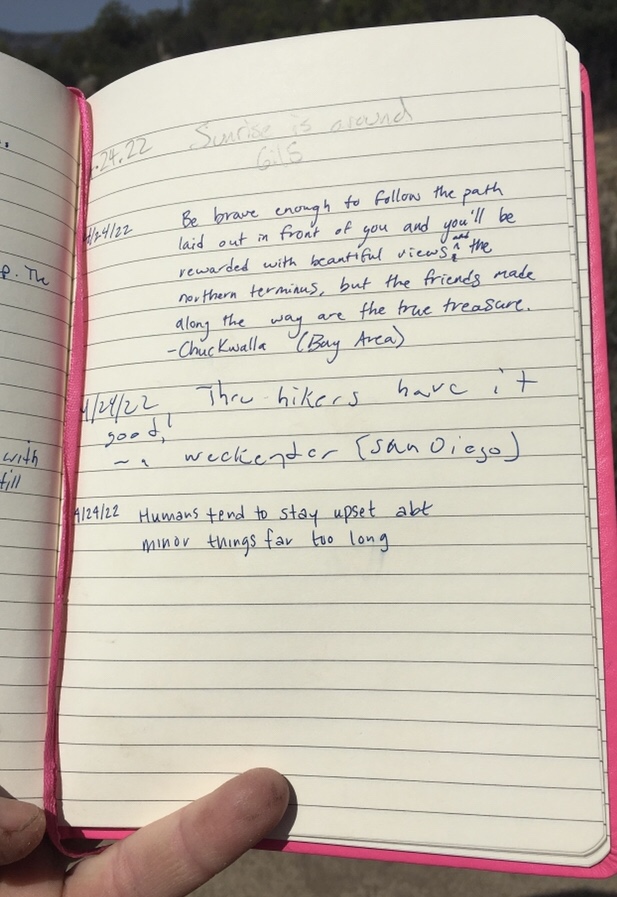 .24.22 Sunrise is around
6:15
4/24/22 Be brave enough to follow the path
laid out in front of you and you'll be
rewarded with beautiful views, and the
northern terminus, but the friends made
along the way are the true treasure.
-Chuckwalla (Bay Area)
4/24/22 Thru-hikers have it
good!
~ a weekender (San Diego)
4/24/22 Humans tend to stay upset abt
minor things far too long
p. The
with
till